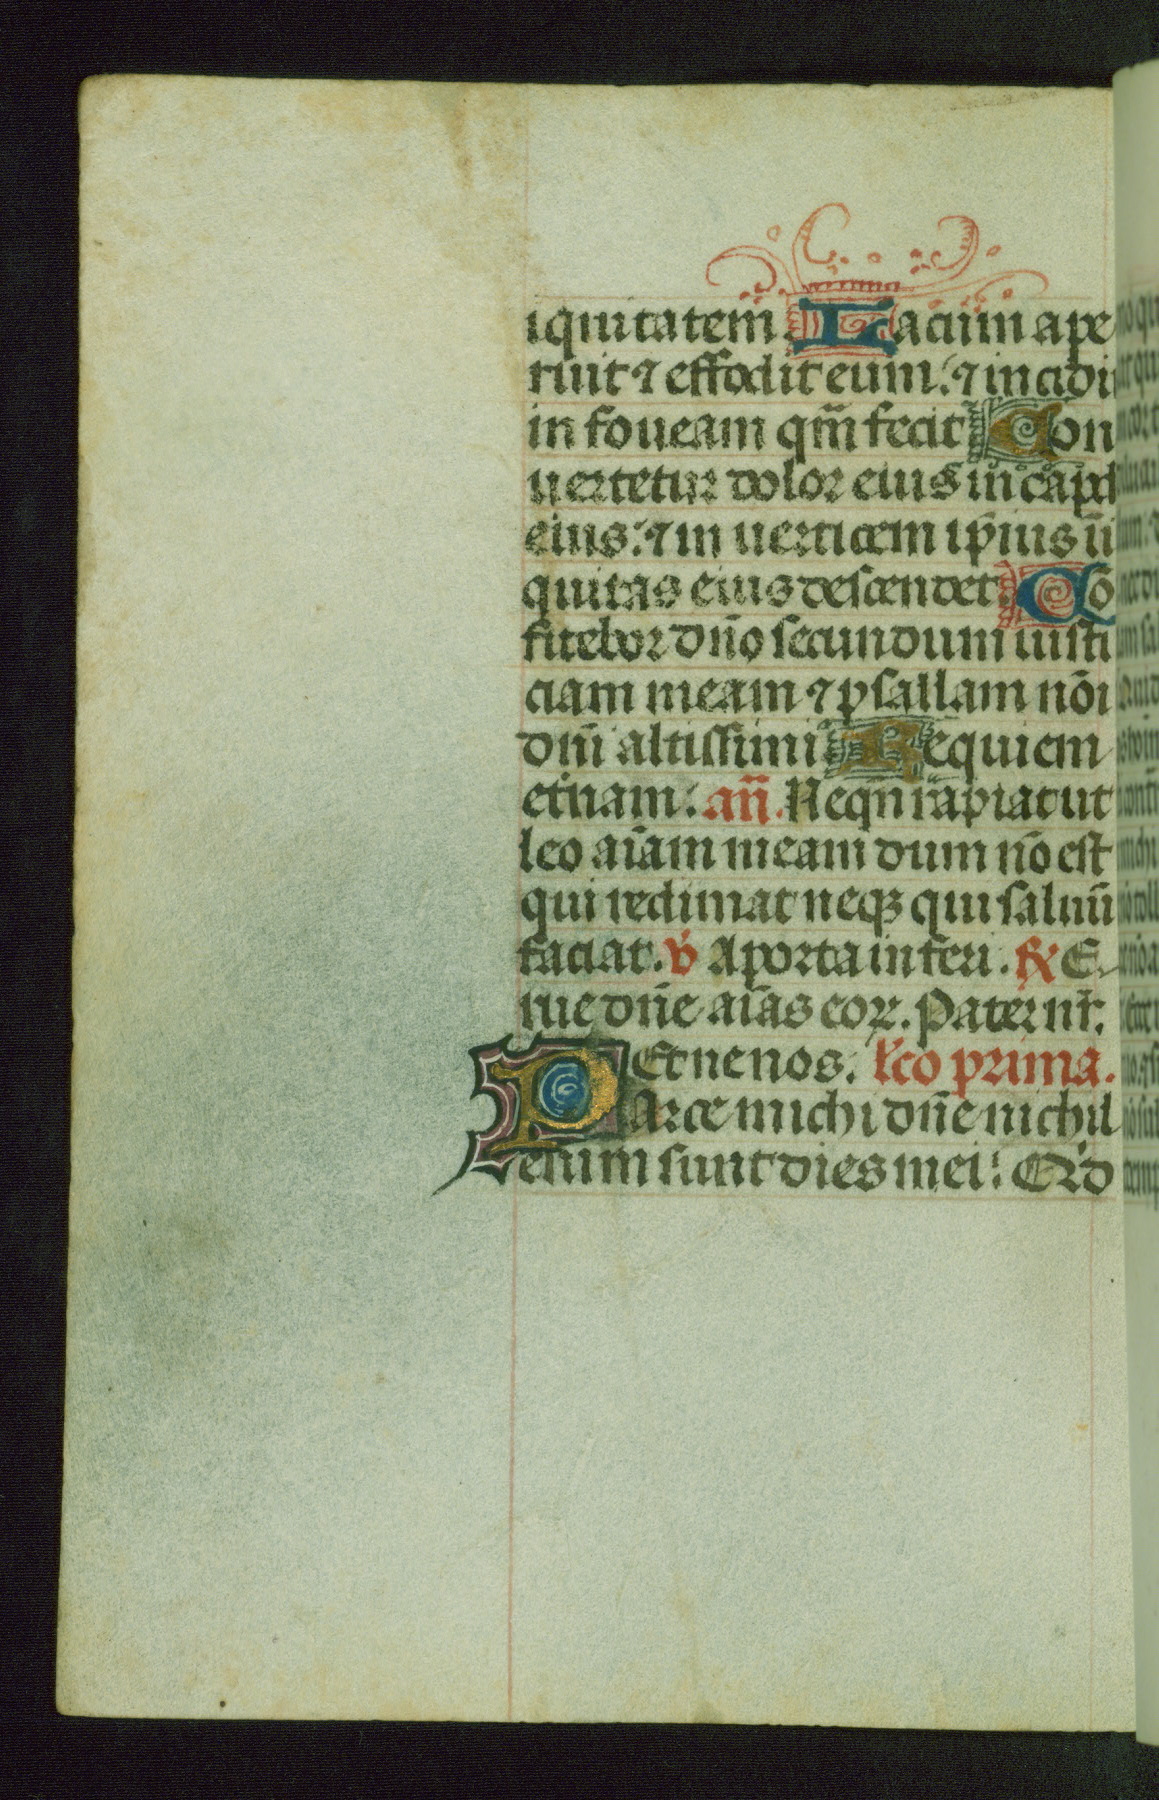 iquitatem Lacum ape
ruit ⁊ effodit eum: ⁊ incidi
in foueam qm̄ fecit Con
uertetur dolor eius in caput
eius: ⁊ in uerticem ip̄ius ii
quitas eius descendet Cō
fitebor dn̄o secundum iusti
ciam meam ⁊ psallam nōi
dnī altissimi Requiem
et̉nam: an̄. Nequn̄ rapiat ut
leo aīam meam dum nō est
qui redimat neqꝫ qui saluū
faciat. v̉ A porta inferi. ℟ E
rue dn̄e aīas eoꝝ. Pater nr̄.
Et ne nos. lc̄o prima.
PArce michi dn̄e nichil
enim sunt dies mei: Qr̉d